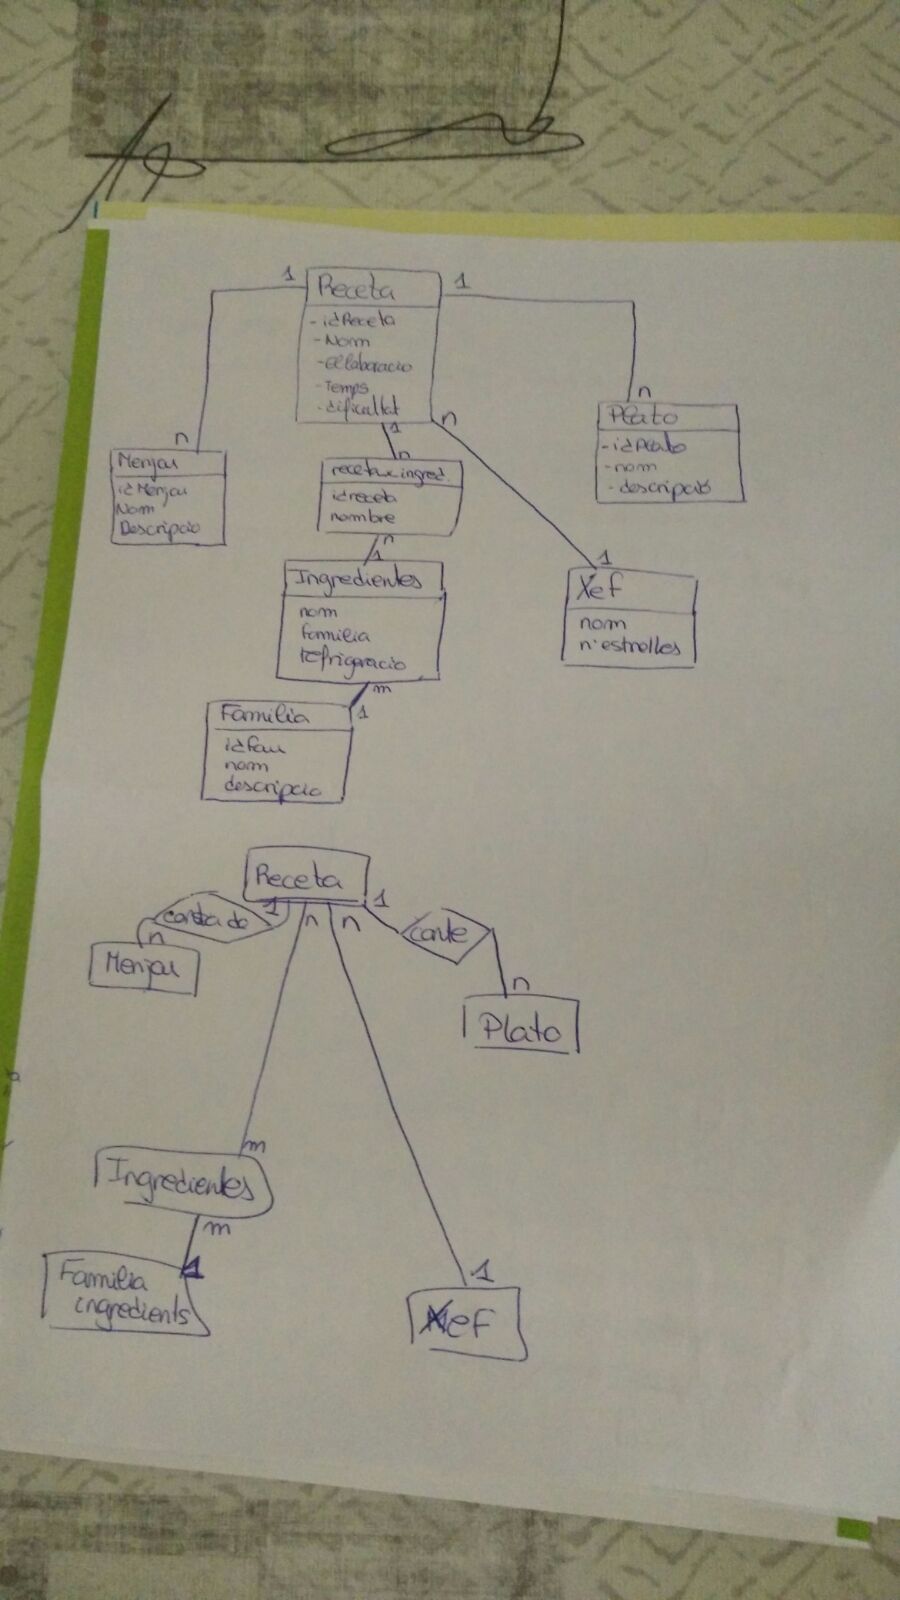 1
Receta
1
- idReceta
- Nom
- Ellaboracio
- Temps
- dificultat
n
1
n
n
n
Menjar
idMenjar
Nom
Descripcio
Plato
- idPlato
- nom
- descripció
receta x ingred.
idreceta
nombre
n
1
1
Ingredientes
nom
familia
refrigeracio
Xef
nom
n'estrelles
m
1
Familia
idfam
nom
descripcio
Receta
1
n
n
1
conte
n
Menjar
n
Plato
m
Ingredientes
m
1
Familia
ingredients
1
Xef